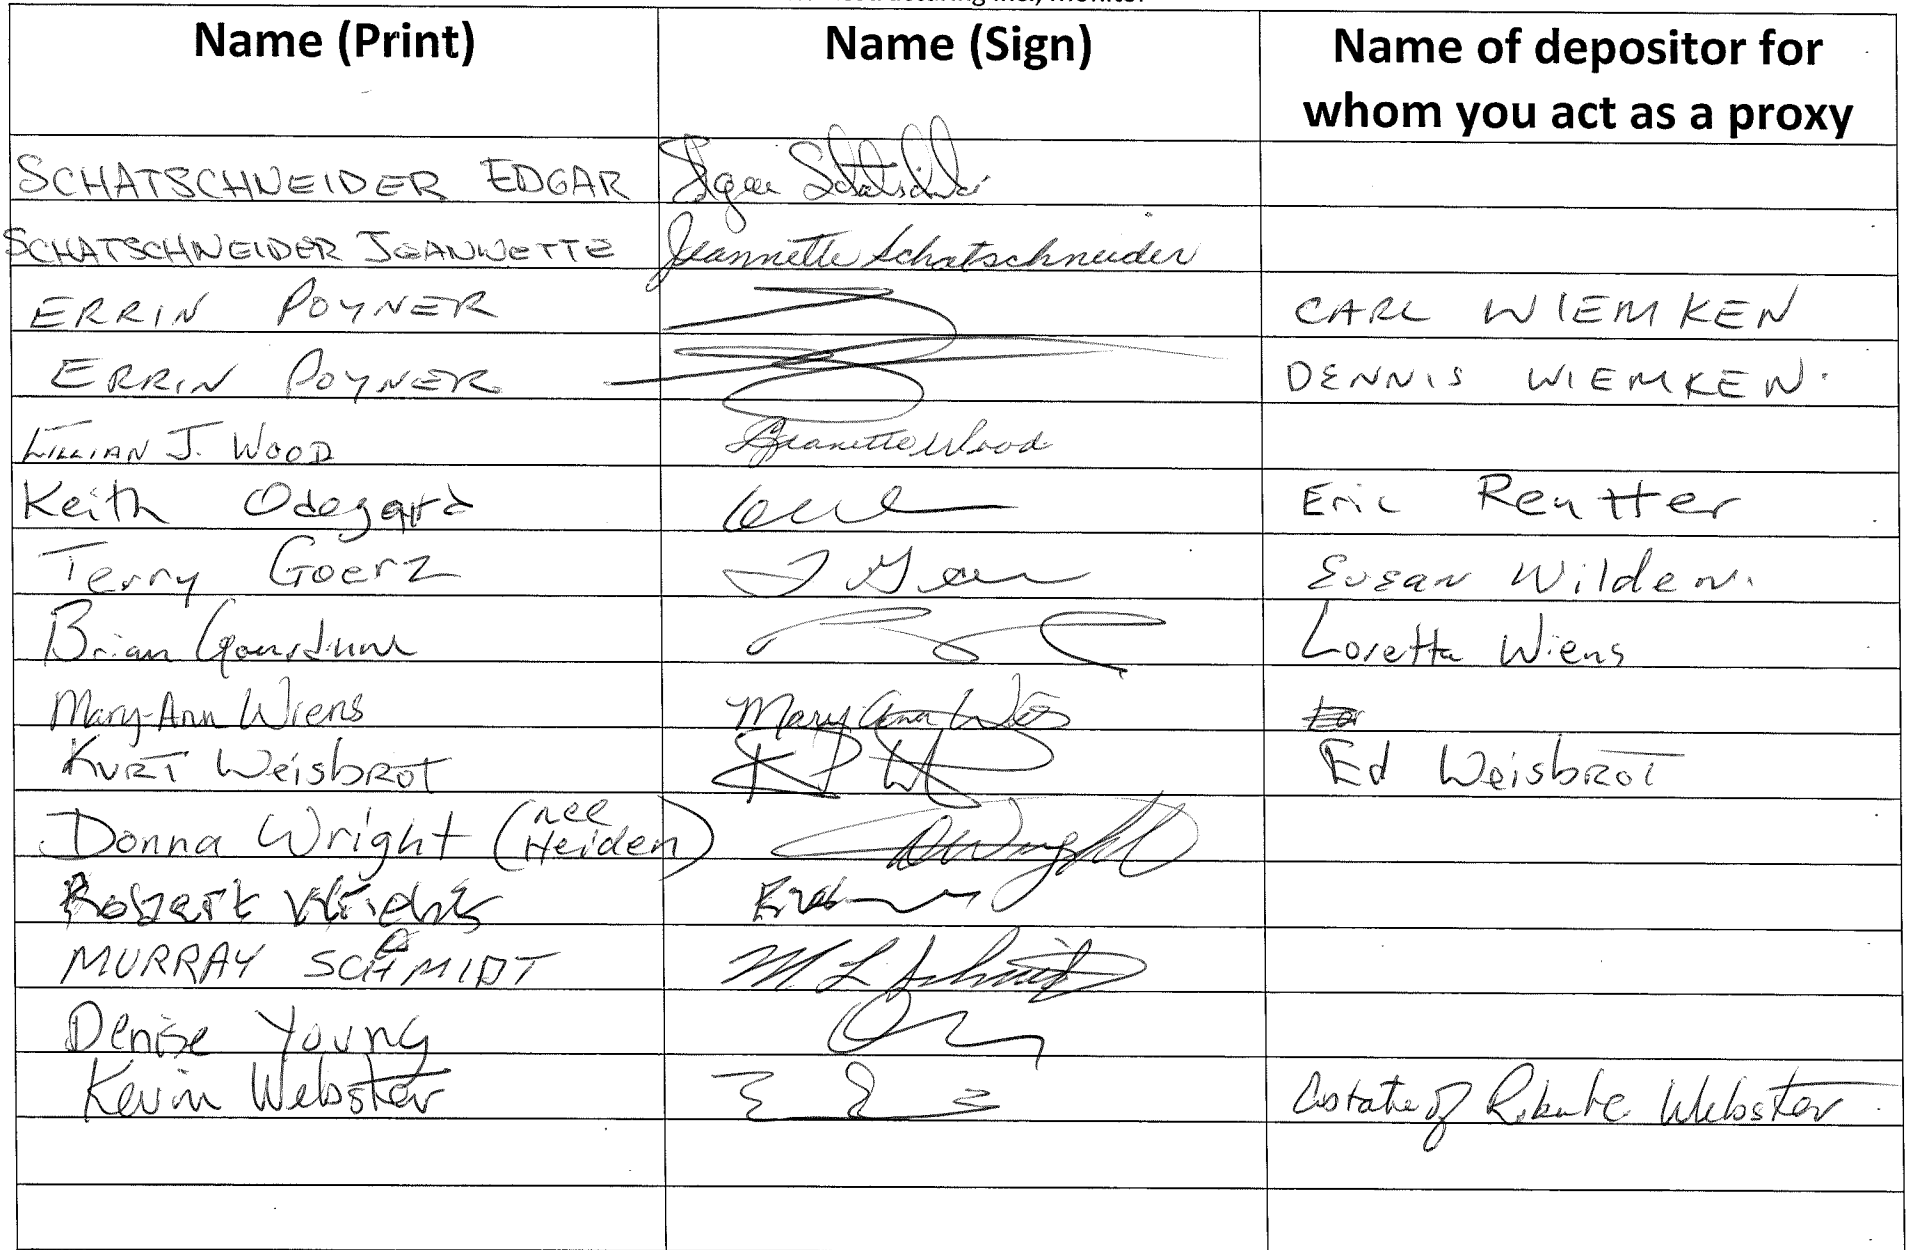 Name (Print) Name (Sign) Name of depositor for
whom you act as a proxy
SCHATSCHNEIDER EDGAR
SCHATSCHNEIDER JEANNETTE Jeannette Schatschneider
ERRIN POYNER CARL WIEMKEN
ERRIN POYNER DENNIS WIEMKEN.
LILLIAN J. WOOD Jeanette Wood
Keith Odegard Eric Reutter
Terry Goerz Susan Wilden.
Brian Loretta Wiens
Mary-Ann Wiens Mary Ann Wiens
KURT Weisbrot Ed Weisbrot
Donna Wright (nee Heiden) DWright
Robert
MURRAY SCHMIDT M L Schmidt
Denise Young
Kevin Webster Estate of Webster